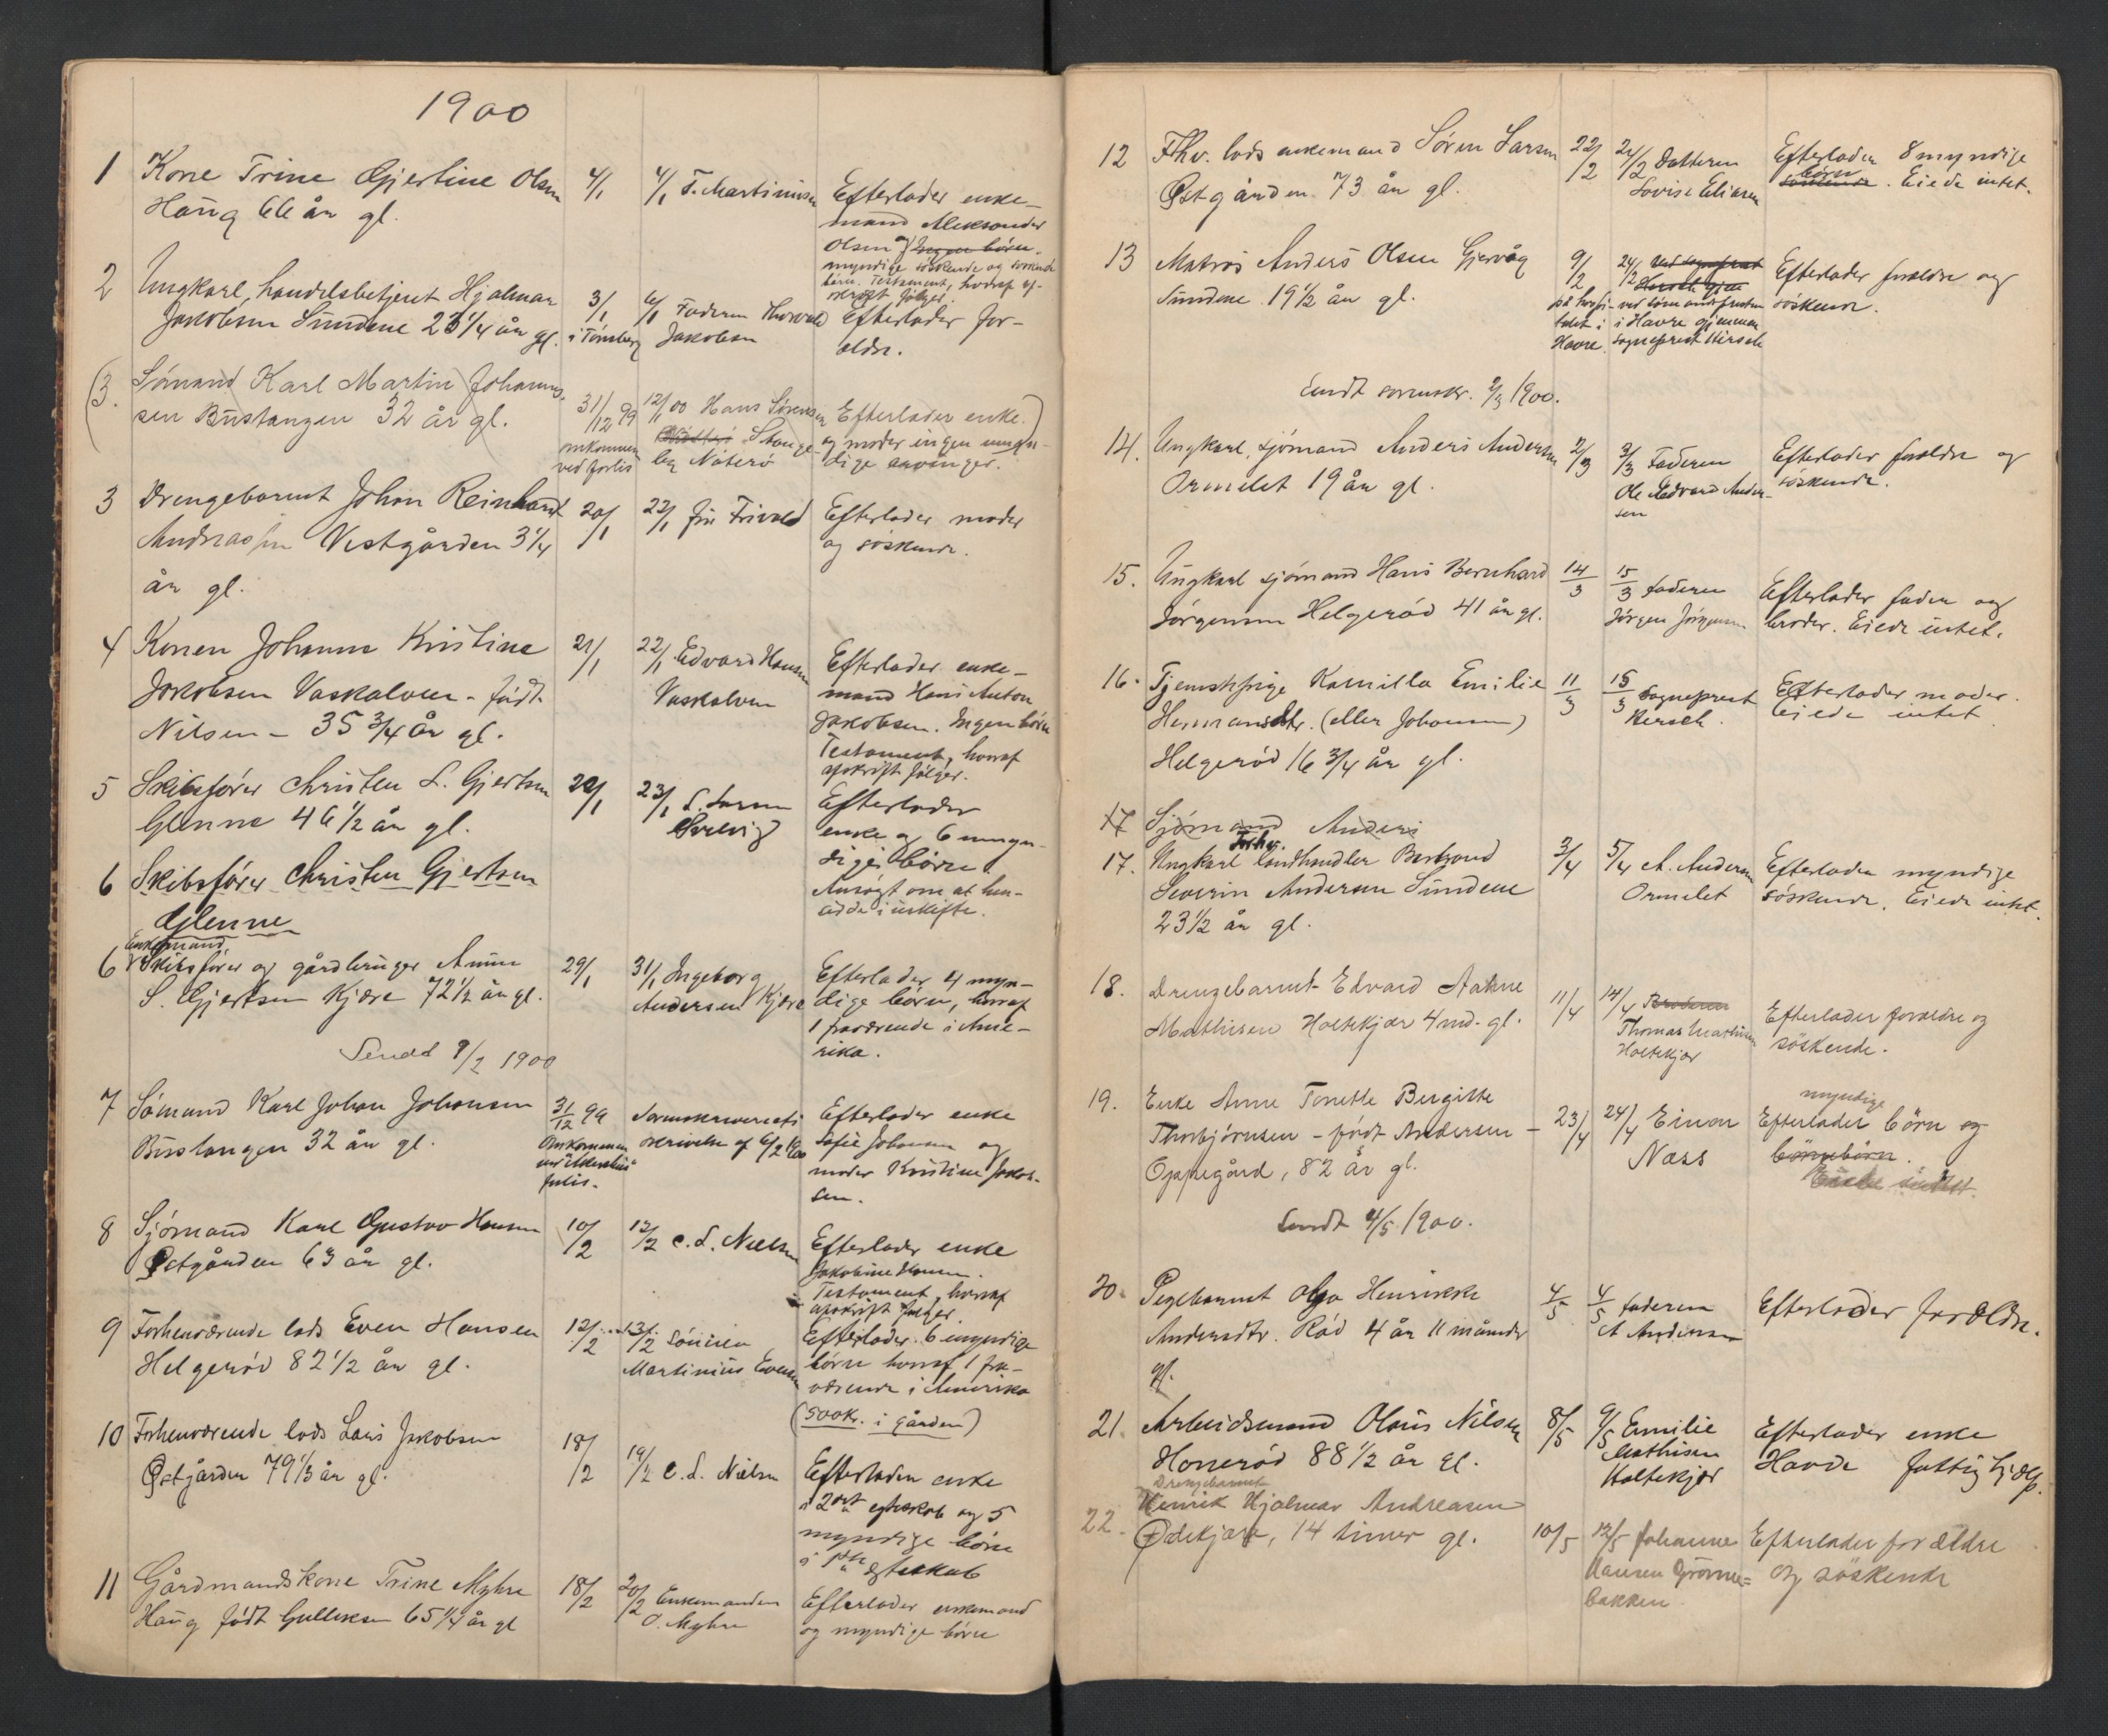 1900
1 Kone Trine Gjertine Olsen 4/1 4/1 F. Martinius Efterlader enke-
Haug 66 år gl. mand Aleksander
Olsen og ingen børn.
myndige söskende og söskende
börn. Testament, hvoraf af-
skrift følger.
2 Ungkarl, handelsbetjent Hjalmar 3/1 6/1 Faderen Thorvald Efterlader for-
Jakobsen Sundene 23 1/4 år gl. i Tönsberg Jakobsen ældre.
(3. Sömand Karl Martin Johannes- 31/12 99 12/1 00 Hans Sörensen Efterlader enke.)
sen Bustangen 32 år gl. omkommen Nötterö Stange- og moder ingen umyn-
ved forlis by Nöterö dige arvinger.
3 Drengebarnet Johan Reinhardt 20/1 22/1 fru Trivold Efterlader moder
Andreassen Vestgården 3 1/4 og söskende.
år gl.
4 Konen Johanne Kristine 21/1 22/1 Edvard Hansen Efterlader enke-
Jakobsen Vaskalven - født Vaskalven mand Hans Anton
Nilsen - 35 3/4 år gl. Jakobsen. Ingen børn
Testament, hvoraf
afskrift følger.
5 Skibsfører Christen L. Gjertsen 22/1 23/1 L. Larsen Efterlader
Glenne 46 1/2 år gl. enke og 6 umyn-
dige børn.
Ansøgt om at hen-
sidde i uskifte.
6 Skibsfører Christen Gjertsen
Glenne
Enkemand,
6 Skibsfører og gårdbruger Anun 29/1 31/1 Ingeborg Efterlader 4 myn-
S. Gjertsen Kjære 72 1/2 år gl. Andersen Kjære dige børn, hvoraf
1 fraværende i Ame-
rika.
Sendt 9/2 1900
7 Sömand Karl Johan Johansen 31/12 99 Sorenskriverets Efterlader enke
Bustangen 32 år gl. Omkommen skrivelse af 6/2 1900 Sofie Johansen og
ved moder Kristine Jakob-
forlis. sen.
8 Sjömand Karl Gustav Hansen 10/2 12/2 C. L. Nielsen Efterlader enke
Østgården 63 år gl. Jakobine Hansen.
Testament, hvoraf
afskrift følger.
9 Forhenværende lods Even Hansen 12/2 13/2 Sönnen Efterlader 6 myndige
Helgerød 82 1/2 år gl. Martinius Evensen børn hvoraf 1 fra-
værende i Amerika
(500 kr. i gården)
10 Forhenværende lods Lars Jakobsen 18/2 19/2 C. L. Nielsen Efterlader enke
Østgården 79 1/3 år gl. i 2det egteskab og 5
myndige børn
i 1ste egteskab
11 Gårdmandskone Trine Myhre 18/2 20/2 Enkemanden Efterlader enkemand
Haug født Gulliksen 65 1/4 år gl O. Myhre og myndige børn
12 Fhv. lods enkemand Sören Larsen 22/2 24/2 Datteren Efterlader 8 myndige
børn
Østgården 73 år gl. Lovise Eliasen söskende. Eiede intet.
13 Matros Anders Olsen Gjervåg 9/2 24/2 Ved sogneprest Efterlader forældre og
Sundene 19 1/2 år gl. på hospi- ved sömandspresten söskende.
talet i i Havre gjennem
Havre. sogneprest Hersch
Sendt sorenskr. 2/3 1900.
14. Ungkarl, sjömand Anders Andersen 2/3 3/3 Faderen Efterlader forældre og
Ormelet 19 år gl. Ole Edvard Ander- söskende.
sen
15. Ungkarl sjömand Hans Bernhard 14/3 15/3 Faderen Efterlader fader og
Jörgensen Helgeröd 41 år gl. Jörgen Jörgensen broder. Eiede intet.
16. Tjenestepige Kamilla Emilie 11/3 15/3 Sogneprest Efterlader moder.
Hermansdtr. (eller Johansen) Hersch. Eiede intet.
Helgeröd 16 3/4 år gl.
17 Sjömand Anders
Forhv.
17. Ungkarl landhandler Bertrand 3/4 5/4 A. Andersen Efterlader myndige
Severin Andersen Sundene Ormelet söskende. Eiede intet.
23 1/2 år gl.
18. Drengebarnet Edvard Mathisen 11/4 14/4 Broderen Efterlader forældre og
Holtekjær 4 md. gl. Thomas Mathisen söskende.
Holtekjær
19. Enke Anne Tonette Birgitte 23/4 24/4 Einar myndige
Thorbjørnsen - født Andersen - Næss Efterlader børn og
Oppegård, 82 år gl. börnebörn.
Eiede intet.
Sendt 4/5 1900.
20. Pigebarnet Olga Henrikke 4/5 4/5 Faderen Efterlader forældre.
Andersdtr. Röd 4 år 11 måneder A Andersen
gl.
21. Arbeidsmand Olaus Nilsen 8/5 9/5 Emilie Efterlader enke
Honeröd 88 1/2 år gl. Mathisen Havde fattighjelp.
Holtekjær
Drengebarnet
22. Henrik Hjalmar Andreasen 10/5 12/5 Johanne Efterlader forældre
Ødekjær, 14 timer gl. Hansen Grönne= og söskende
bakken.